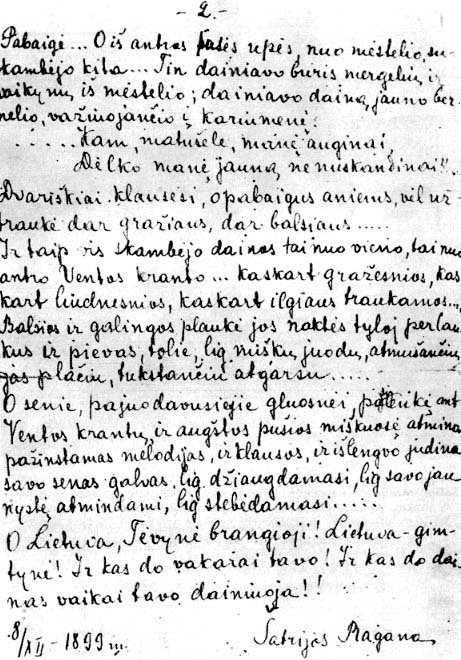 - 2. -
Pabaigė... O iš antros pusės upės, nuo mėstelio, su-
skambėjo kita... Tin dainiavo buris mergelių ir
vaikynų iš mėstelio; dainiavo dainą jauno ber-
nelio, važinojančio į kariumenę:
..... Kam, matušele, manė auginai,
Dėlko manė jauną nenuskandinai!!
Dvariškiai klausėsi, o pabaigus aniems, vėl už-
traukė dar gražiaus, dar balsiaus.....
Ir taip vis skambėjo dainos tai nuo vieno, tai nuo
antro Ventos kranto... kaskart gražesnios, kas
kart liudnesnios, kaskart ilgiaus traukamos...,
Balsios ir galingos plaukė jos naktės tyloj per lau-
kus ir pievas, tolie, lig miškų juodų, atmušančių
jas plačiu, tukstančiu atgarsu.....
O senie, pajuodavusiejie gluosnei, palinkę ant
Ventos krantų, ir augštos pušios miškuosė atmina
pažinstamas melodijas, ir klausos, ir iš lengvo judina
savo senas galvas, lig džiaugdamasi, lig savo jau-
nystę atmindami, lig stebėdamasi.....
O Lietuva, Tėvynė brangioji! Lietuva - gim-
tynė! Ir kas do vakarai tavo! Ir kas do dai-
nas vaikai tavo dainuoja!!
8/XII - 1899 m.
Šatrijos Ragana